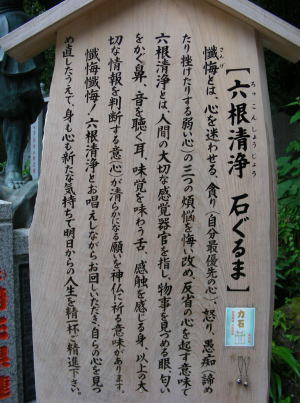 ［六根清浄　石ぐるま］
ろっこんしょうじょう
さんげ
懺悔とは、心を迷わせる、貪り（自分最優先の心）、怒り、愚痴（諦め
たり挫けたりする弱い心）の三つの煩悩を悔い改め、反省の心を起す意味で
六根清浄とは、人間の大切な感覚器官を指し、物事を見つめる眼、匂い
をかぐ鼻、音を聴く耳、味覚を味わう舌、感触を感じる身、以上の大
切な情報を判断する意（心）が清らかになる願いを神仏に祈る意味があります。
懺悔懺悔／六根清浄とお唱えしながらお回しいただき、自らの心を見つ
め直したうえで、身も心も新たな気持ちで明日からの人生を精一杯ご精進下さい。
力石